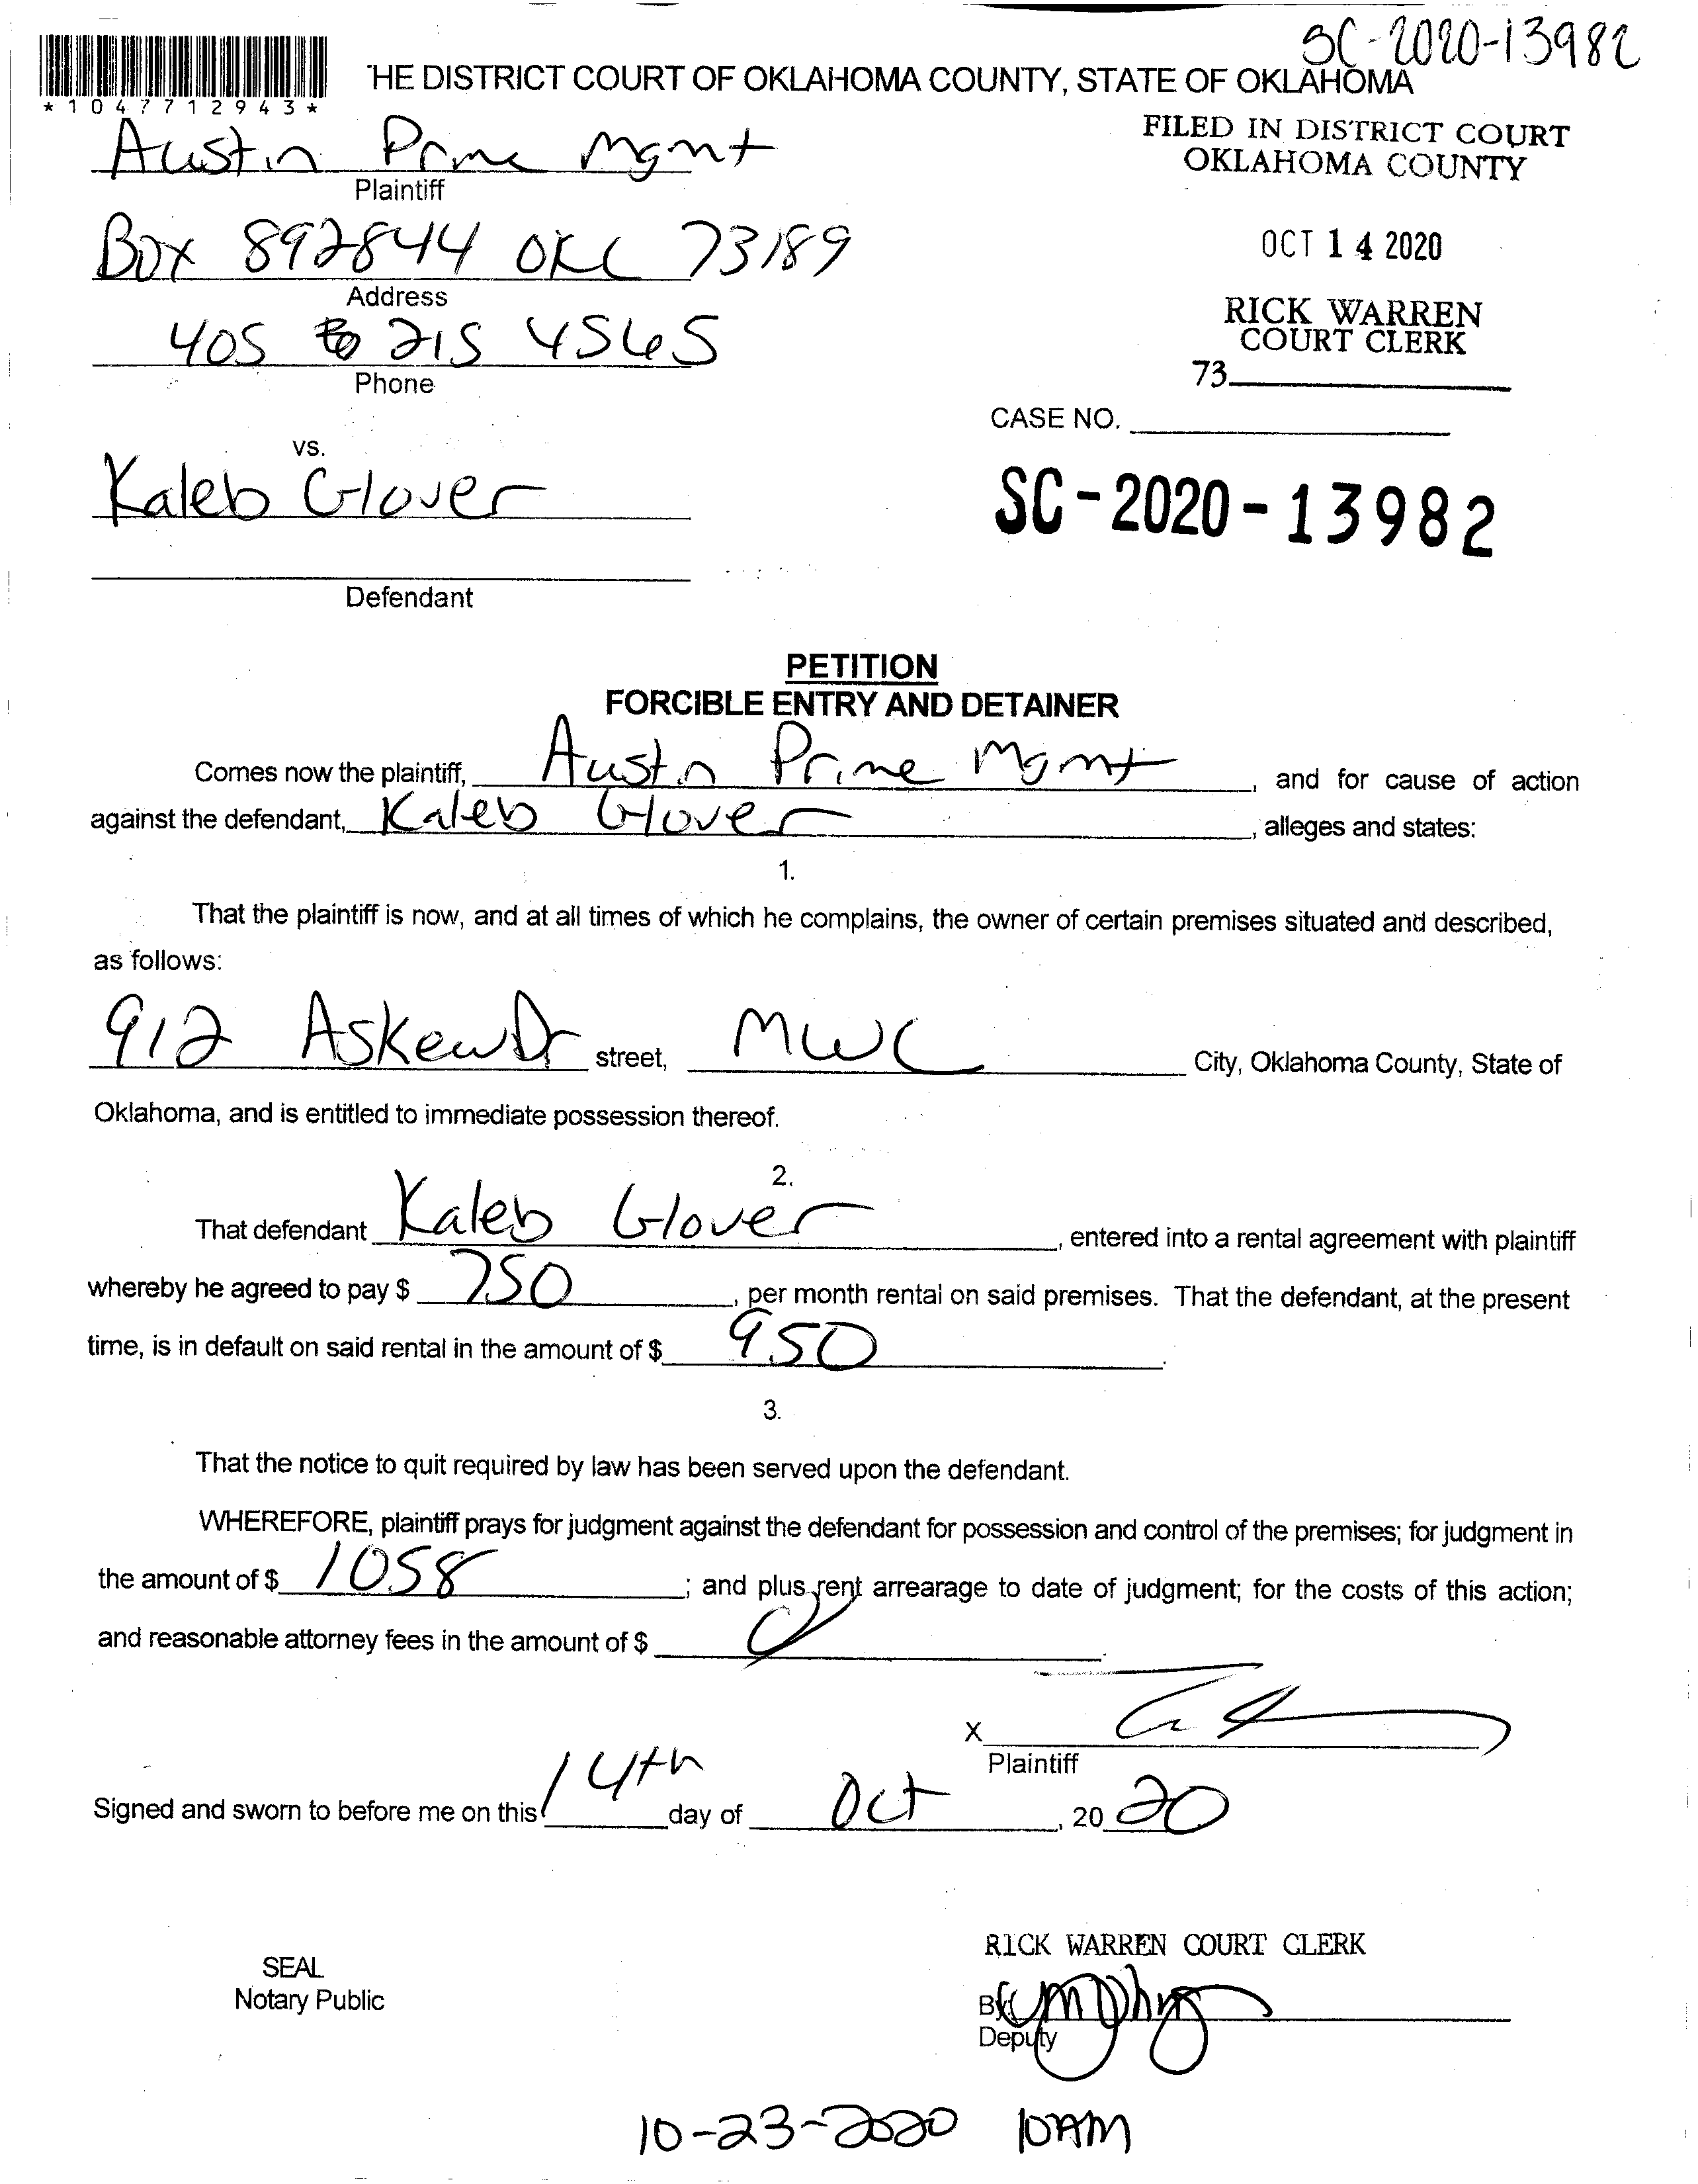 SC-2020-13982
'HE DISTRICT COURT OF OKLAHOMA COUNTY, STATE OF OKLAHOMA
*1047712943*
FILED IN DISTRICT COURT
OKLAHOMA COUNTY
Austin Prime Mgmt
Plaintiff
Box 892844 OKC 73189
OCT 14 2020
Address
RICK WARREN
COURT CLERK
405 215 4565
Phone
73
CASE NO.
vs.
Kaleb Glover
SC-2020-13982
Defendant
PETITION
FORCIBLE ENTRY AND DETAINER
Comes now the plaintiff, Austin Prime Mgmt, and for cause of action
against the defendant, Kaleb Glover, alleges and states:
1.
That the plaintiff is now, and at all times of which he complains, the owner of certain premises situated and described,
as follows:
912 Askew Dr street, MWC City, Oklahoma County, State of
Oklahoma, and is entitled to immediate possession thereof.
2.
That defendant Kaleb Glover, entered into a rental agreement with plaintiff
whereby he agreed to pay $ 750, per month rental on said premises. That the defendant, at the present
time, is in default on said rental in the amount of $ 950.
3.
That the notice to quit required by law has been served upon the defendant.
WHEREFORE, plaintiff prays for judgment against the defendant for possession and control of the premises; for judgment in
the amount of $ 1058; and plus rent arrearage to date of judgment; for the costs of this action;
and reasonable attorney fees in the amount of $ 0.
X
Plaintiff
Signed and sworn to before me on this 14th day of Oct, 2020
RICK WARREN COURT CLERK
SEAL
Notary Public
By
Deputy
10-23-2020 10AM